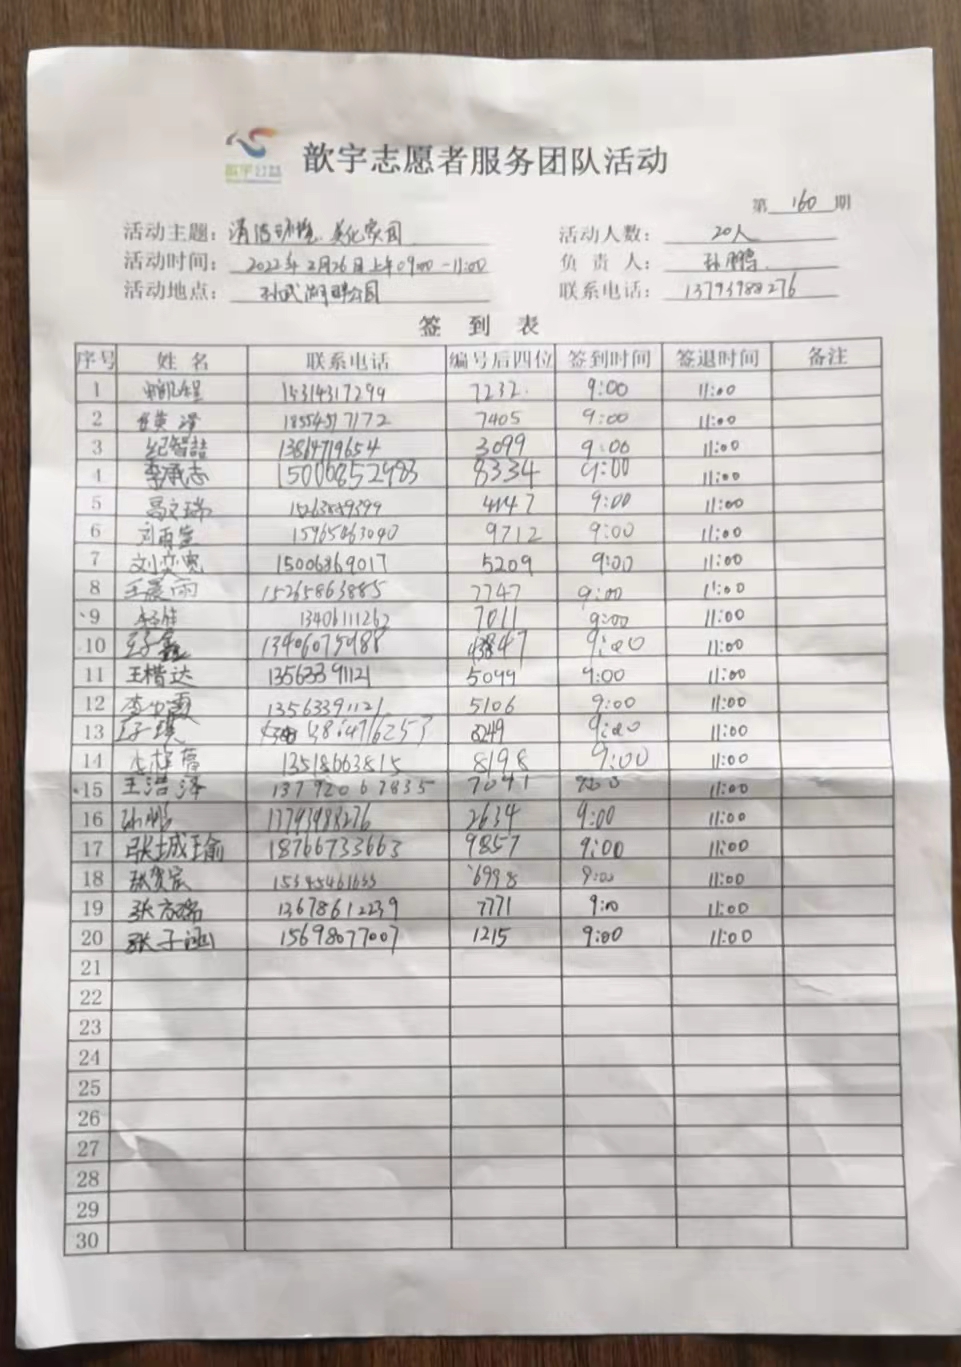 歆宇公益
歆宇志愿者服务团队活动
第 160 期
活动主题: 清洁环境 美化家园 活动人数: 20人
活动时间: 2022年2月26日上午09:00-11:00 负 责 人: 孙鹏
活动地点: 孙武湖畔公园 联系电话: 13793988276
签 到 表
序号 姓 名 联系电话 编号后四位 签到时间 签退时间 备注
1 15314317299 7232 9:00 11:00
2 18554517172 7405 9:00 11:00
3 纪智喆 13814719654 3099 9:00 11:00
4 李承志 15006852983 8334 9:00 11:00
5 4147 9:00 11:00
6 刘雨萱 15965463040 9712 9:00 11:00
7 刘奕宽 15006869017 5209 9:00 11:00
8 王晨雨 15265863885 7747 9:00 11:00
9 13406111262 7011 9:00 11:00
10 13406075988 3847 9:00 11:00
11 王楷达 13563391121 5099 9:00 11:00
12 13563391121 5106 9:00 11:00
13 8249 9:00 11:00
14 13518663815 8198 9:00 11:00
15 王浩泽 13792067835 7041 9:00 11:00
16 孙鹏 13793988276 2634 9:00 11:00
17 张城瑜 18766733663 9857 9:00 11:00
18 张贺宸 15345461633 6998 9:00 11:00
19 张方瑞 13678612239 7771 9:00 11:00
20 张子涵 15698077007 1215 9:00 11:00
21
22
23
24
25
26
27
28
29
30